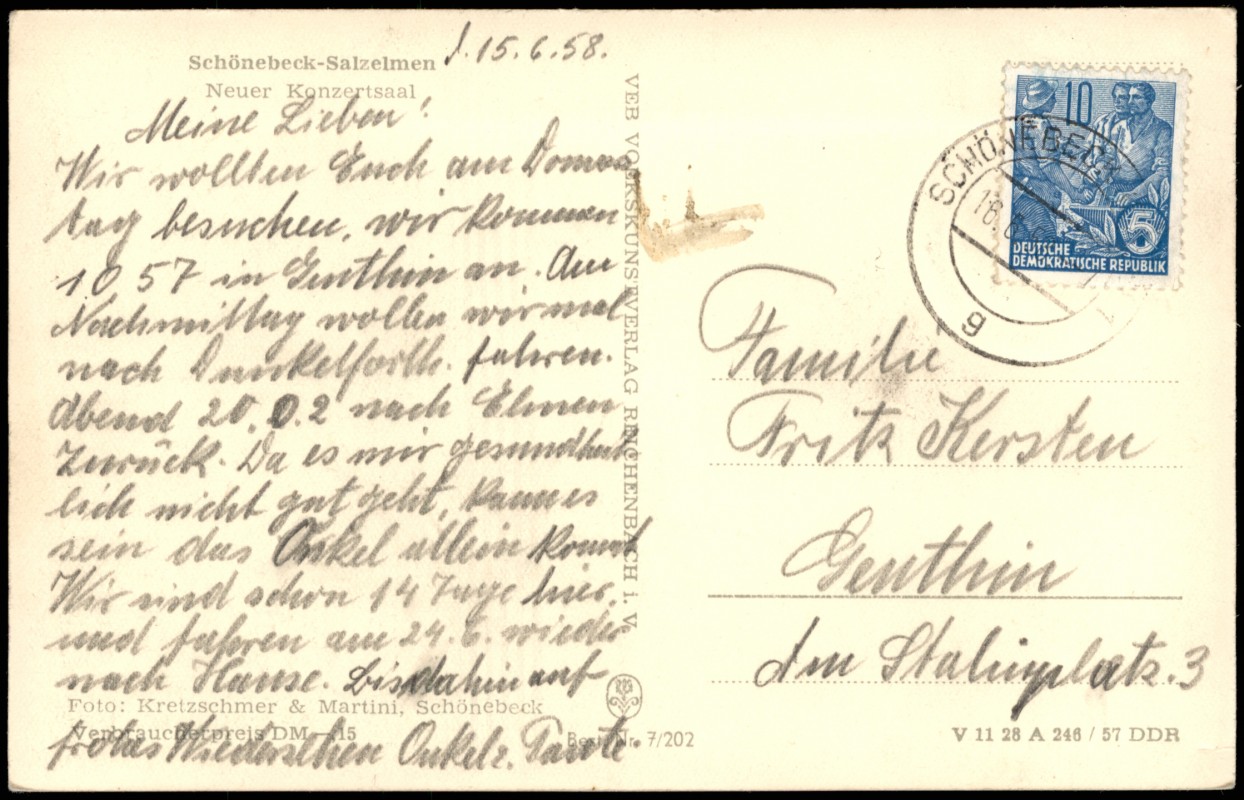 Schönebeck-Salzelmen
Neuer Konzertsaal
d. 15.6.58.
Meine Lieben!
Wir wollten Euch am Donners
tag besuchen, wir kommen
10 57 in Genthin an. Am
Nachmittag wollen wir mal
nach Dunkelforth. fahren.
Abend 20.02 nach Elmen
zurück. Da es mir gesundheit
lich nicht gut geht, kann es
sein das Onkel allein kommt
Wir sind schon 14 Tage hier,
und fahren am 24.6. wieder
nach Hause. Bis dahin auf
frohes Wiedersehen Onkel u. Tante
Foto: Kretzschmer & Martini, Schönebeck
Verbraucherpreis DM —.15
Best.-Nr. 7/202
VEB VOLKSKUNSTVERLAG REICHENBACH i. V.
10
5
DEUTSCHE
DEMOKRATISCHE REPUBLIK
SCHÖNEBECK
18.6
g
Familie
Fritz Kersten
Genthin
Am Stalinplatz. 3
V 11 28 A 246 / 57 DDR